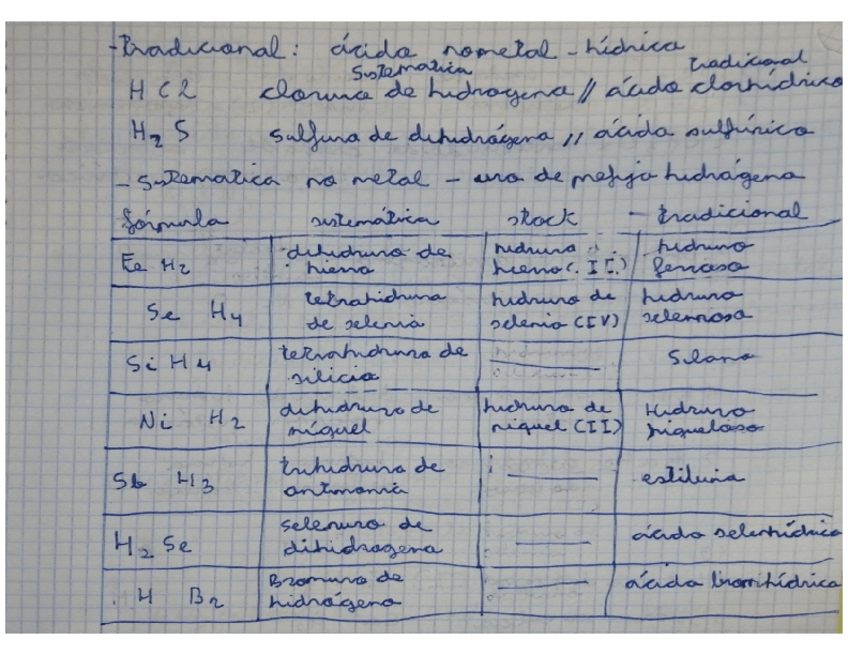 - Tradicional: ácido nometal - hídrico
Sistematica tradicional
HCl cloruro de hidrogeno // ácido clorhídrico
H2S sulfuro de dihidrógeno // ácido sulfúrico
- Sistematica no metal - uro de prefijo hidrógeno
fórmula sistemática stock - tradicional
Fe H2 dihidruro de hierro hidruro hierro (II) hidruro ferroso
Se H4 tetrahidruro de selenio hidruro de selenio (IV) hidruro selenioso
Si H4 tetrahidruro de silicio — Silano
Ni H2 dihidruro de níquel hidruro de niquel (II) Hidruro niqueloso
Sb H3 trihidruro de antimonio — estibina
H2 Se seleniuro de dihidrogeno — ácido selenhídrico
H Br Bromuro de hidrógeno — ácido bromhídrico